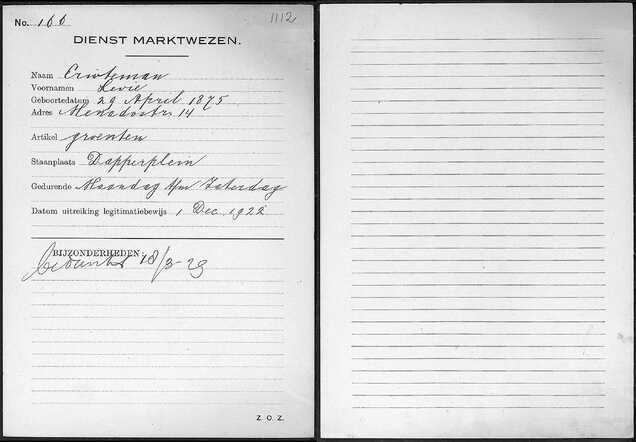 No. 166
1112
DIENST MARKTWEZEN.
Naam Crivteman
Voornamen Levie
Geboortedatum 29 April 1875
Adres Menadostr 14
Artikel groenten
Staanplaats Dapperplein
Gedurende Maandag t/m Zaterdag
Datum uitreiking legitimatiebewijs 1 Dec. 1922
BIJZONDERHEDEN:
bedankt 18/3-29
Z. O. Z.